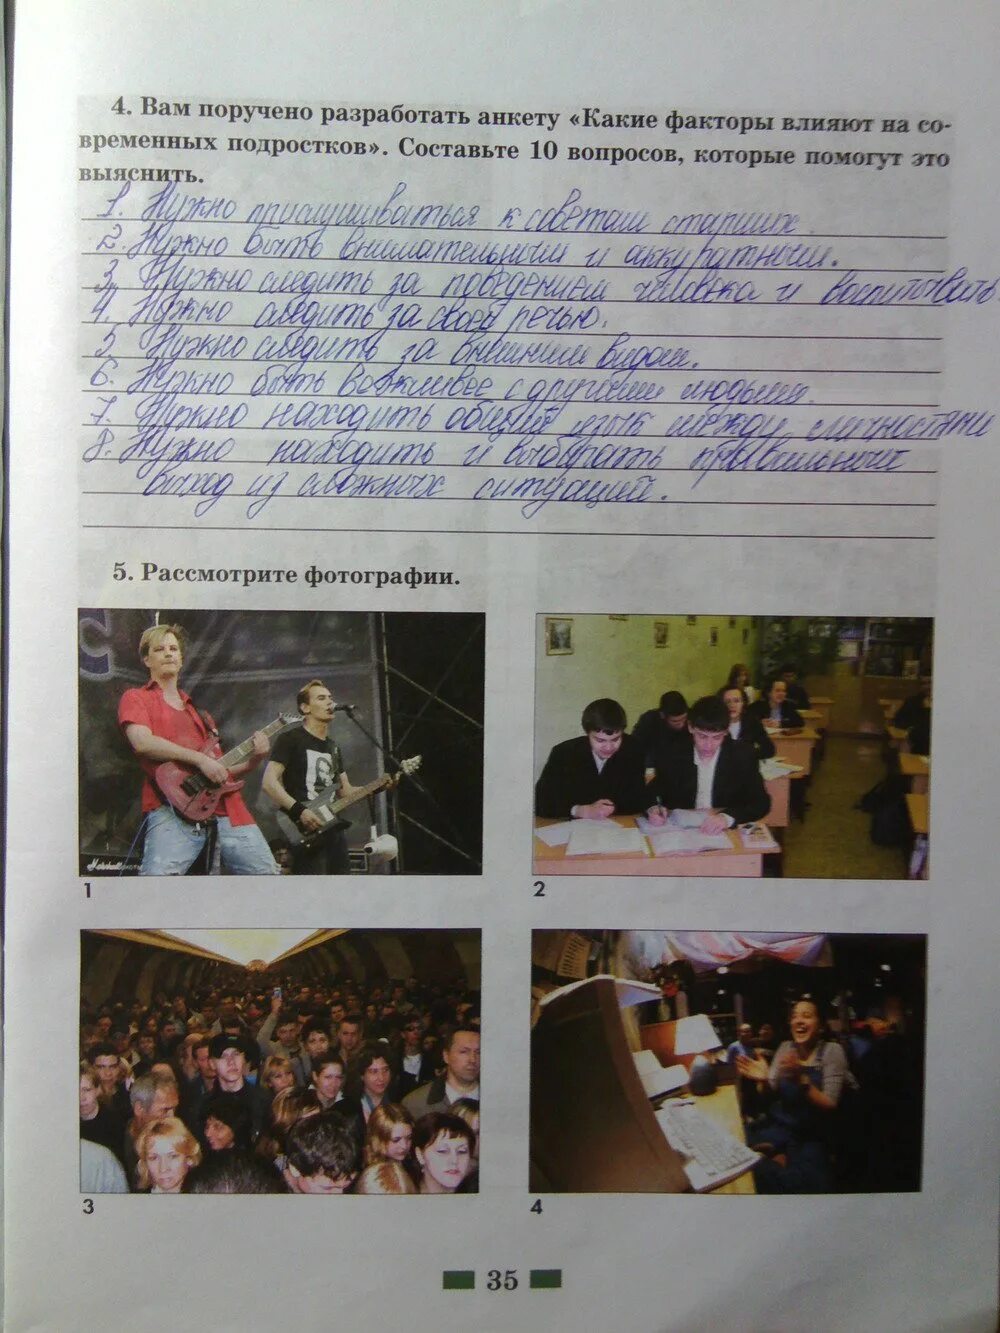 4. Вам поручено разработать анкету «Какие факторы влияют на со-
временных подростков». Составьте 10 вопросов, которые помогут это
выяснить.
1. Нужно прислушиваться к советам старших.
2. Нужно быть внимательным и аккуратным.
3. Нужно следить за поведением человека и воспитывать
4. Нужно следить за своей речью.
5. Нужно следить за внешним видом.
6. Нужно быть вежливее с другими людьми.
7. Нужно находить общий язык между личностями
8. Нужно находить и выбирать правильный
выход из сложных ситуаций.
5. Рассмотрите фотографии.
Marshall
1
2
3
4
35